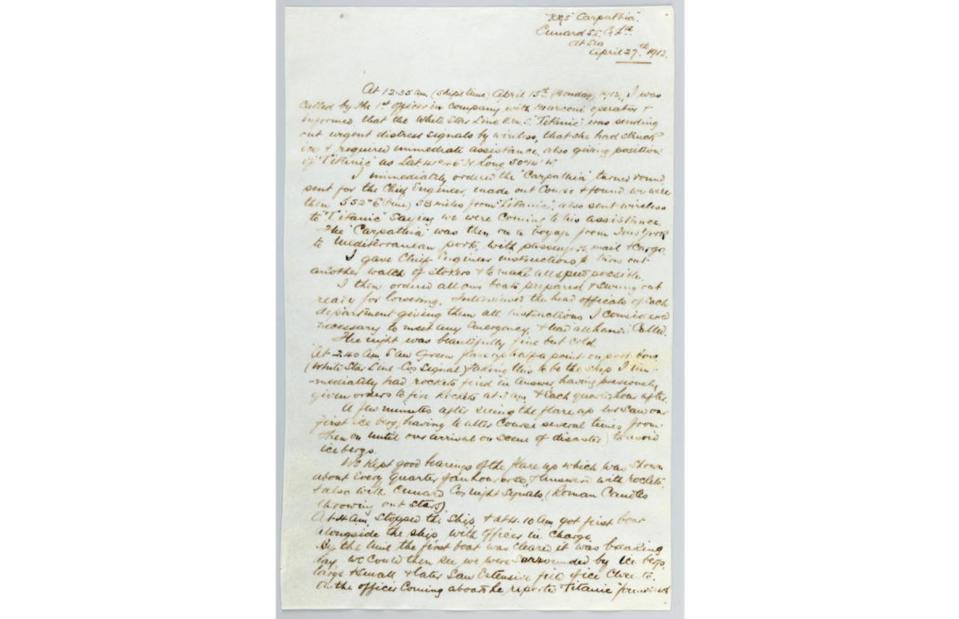 R.M.S "Carpathia".
Cunard S.S. Co Ltd.
At Sea
April 27th 1912.
At 12.35 am (ships time) April 15th (Monday) 1912, I was
called by the 1st officer in company with Marconi operator &
informed that the White Star Line R.M.S "Titanic" was sending
out urgent distress signals by wireless, that she had struck
ice & required immediate assistance, also giving position
of "Titanic" as Lat 41°46'N Long 50°14'W.
I immediately ordered the "Carpathia" turned round,
sent for the Chief Engineer, made out course & found we were
then S52°E (true) 58 miles from "Titanic", also sent wireless
to "Titanic" saying we were coming to his assistance
The "Carpathia" was then on a voyage from New York
to Mediterranean ports, with passengers mail & cargo.
I gave Chief Engineer instructions to turn out
another watch of stokers & to make all speed possible.
I then ordered all our boats prepared & swung out
ready for lowering. Interviewed the head officials of each
department giving them all instructions I considered
necessary to meet any emergency, & had all hands called.
The night was beautifully fine but cold.
At 2.40 am Saw Green flare up half a point on port bow
(White Star Line Cos Signal) taking this to be the ship I im-
-mediately had rockets fired in answer, having previously
given orders to fire rockets at 3 am & each quarter hour after.
A few minutes after seeing the flare up we saw our
first ice berg, (having to alter course several times from
then on until our arrival on scene of disaster) to avoid
icebergs.
We kept good bearings of the flare up which was shown
about every quarter of an hour or so, & answered with rockets
& also with Cunard Cos night signals, (Roman Candles
throwing out stars).
At 4 am. stopped the ship, & at 4.10 am got first boat
alongside the ship, with officer in charge.
By the time the first boat was cleared it was breaking
day, we could then see we were surrounded by ice bergs,
large & small & later saw extensive field of ice close to.
On the officer coming aboard he reported "Titanic"